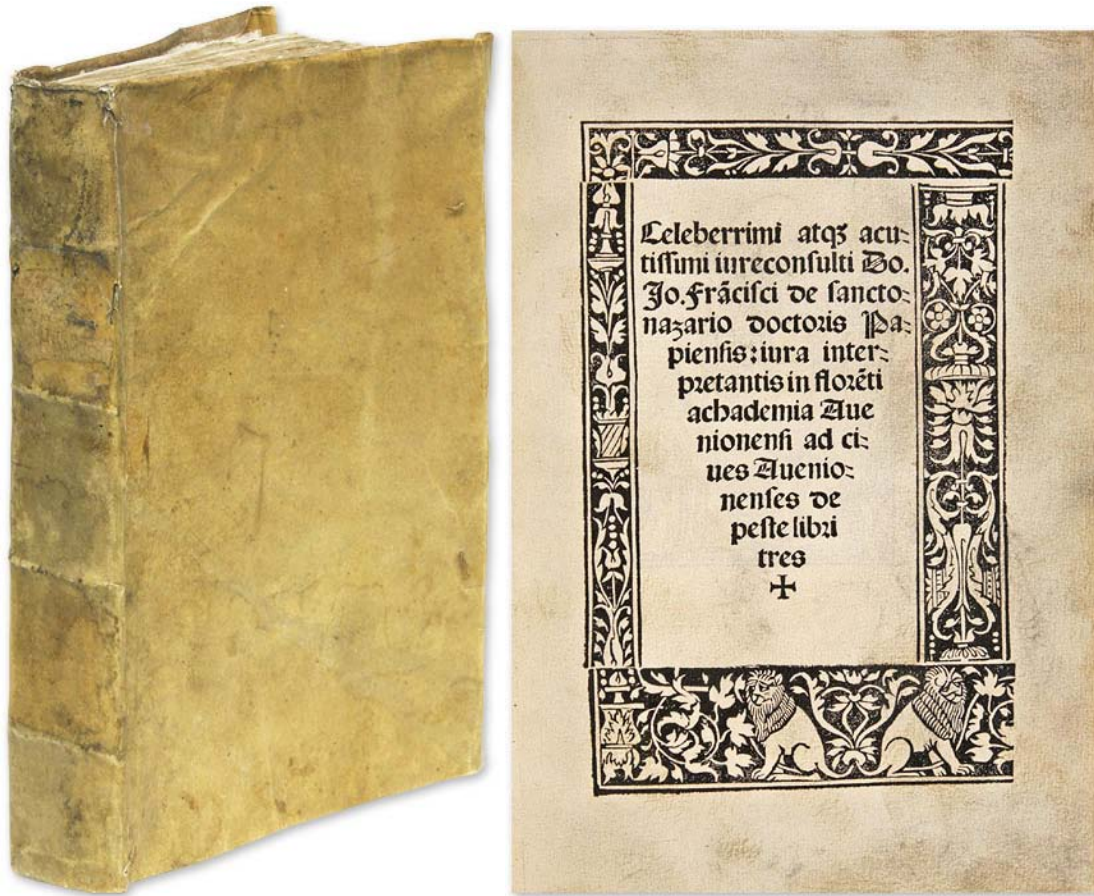 Celeberrimi atqꝫ acu⸗
tissimi iureconsulti Do.
Jo. Frãcisci de sancto⸗
nazario doctoris Pa⸗
piensis: iura inter⸗
pretantis in florẽti
achademia Aue
nionensi ad ci⸗
ues Auenio⸗
nenses de
peste libri
tres